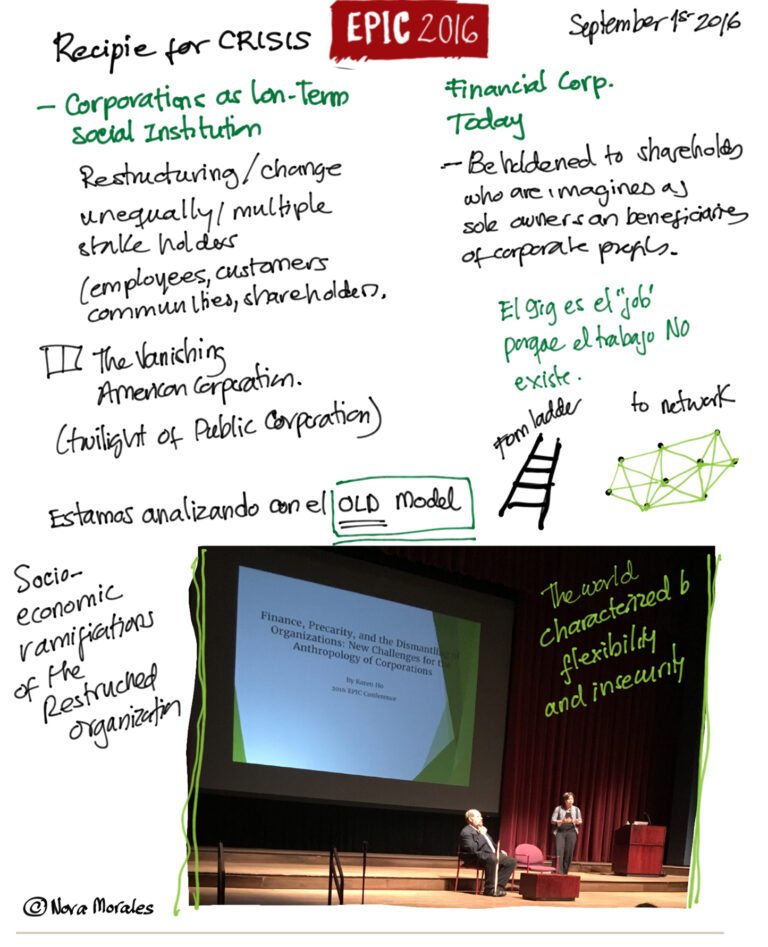 Recipie for CRISIS
EPIC 2016
September 1st 2016
- Corporations as Lon-Term
Social Institution
Restructuring/change
unequally/multiple
stake holders
(employees, customers
communities, shareholders.
The Vanishing
American Corporation.
(twilight of Public Corporation)
Financial Corp.
Today
- Beholdened to shareholds
who are imagines as
sole owners an beneficiaries
of corporate profits.
El gig es el "job"
porque el trabajo NO
existe.
From ladder
to network
Estamos analizando con el OLD Model
Socio-
economic
ramifications
of the
Restruched
organization
Finance, Precarity, and the Dismantling of
Organizations: New Challenges for the
Anthropology of Corporations
By Karen Ho
2016 EPIC Conference
The world
characterized b
flexibility
and insecurity
© Nora Morales